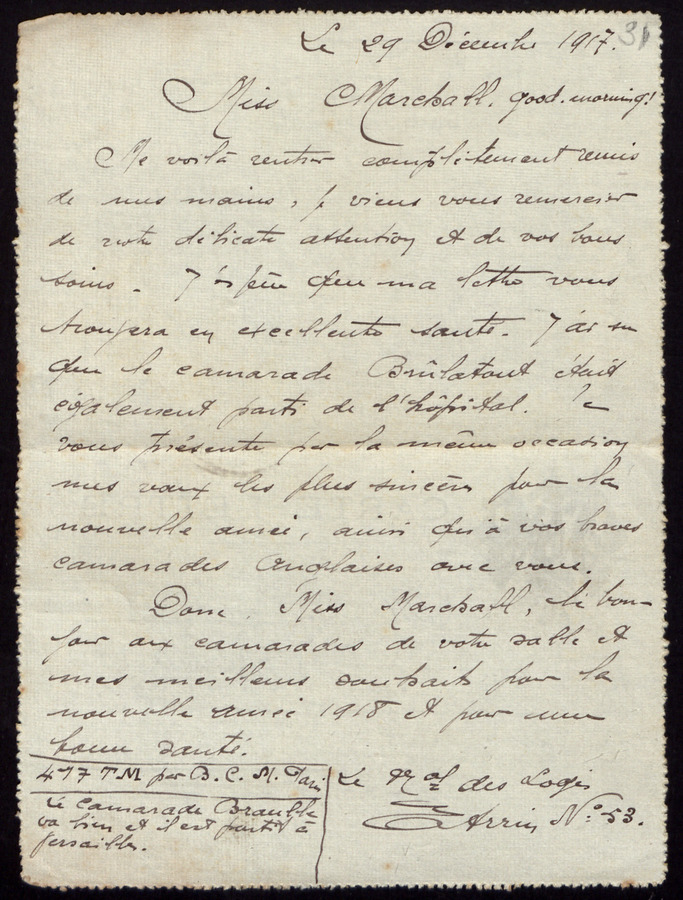 31
Le 29 Décembre 1917.
Miss Marchall. good. morning!
Me voilà rentrer complètement remis
de mes mains, je viens vous remercier
de votre délicate attention et de vos bons
soins. J'éspère que ma lettre vous
trouvera en excellente santé. J'ai su
que le camarade Brûlatout était
également parti de l'hôpital. Je
vous présente par la même occasion
mes vœux les plus sincères pour la
nouvelle année, ainsi qu'à vos braves
camarades Anglaises avec vous.
Donc, Miss Marchall, le bon-
jour aux camarades de votre salle et
mes meilleurs souhaits pour la
nouvelle année 1918 et pour une
bonne santé.
Le Mal des Logis
N°. 53.
477 TM par B. C. M. Paris
Le camarade
va bien et il est partit à
Versailles.